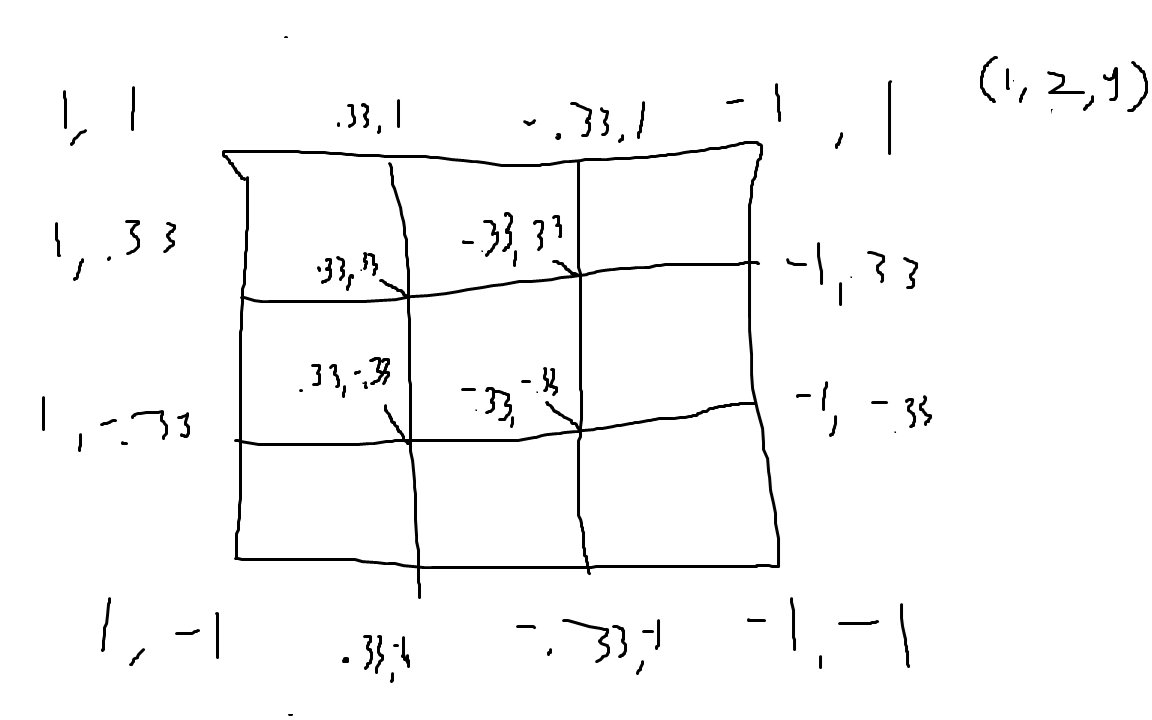 1, 1 .33, 1 -.33, 1 -1, 1 (1, 2, y)
1, .33 -1, .33
.33, .33 -.33, 33
.33, -.33 -.33, -.33
1, -.33 -1, -.33
1, -1 .33, -1 -.33, -1 -1, -1